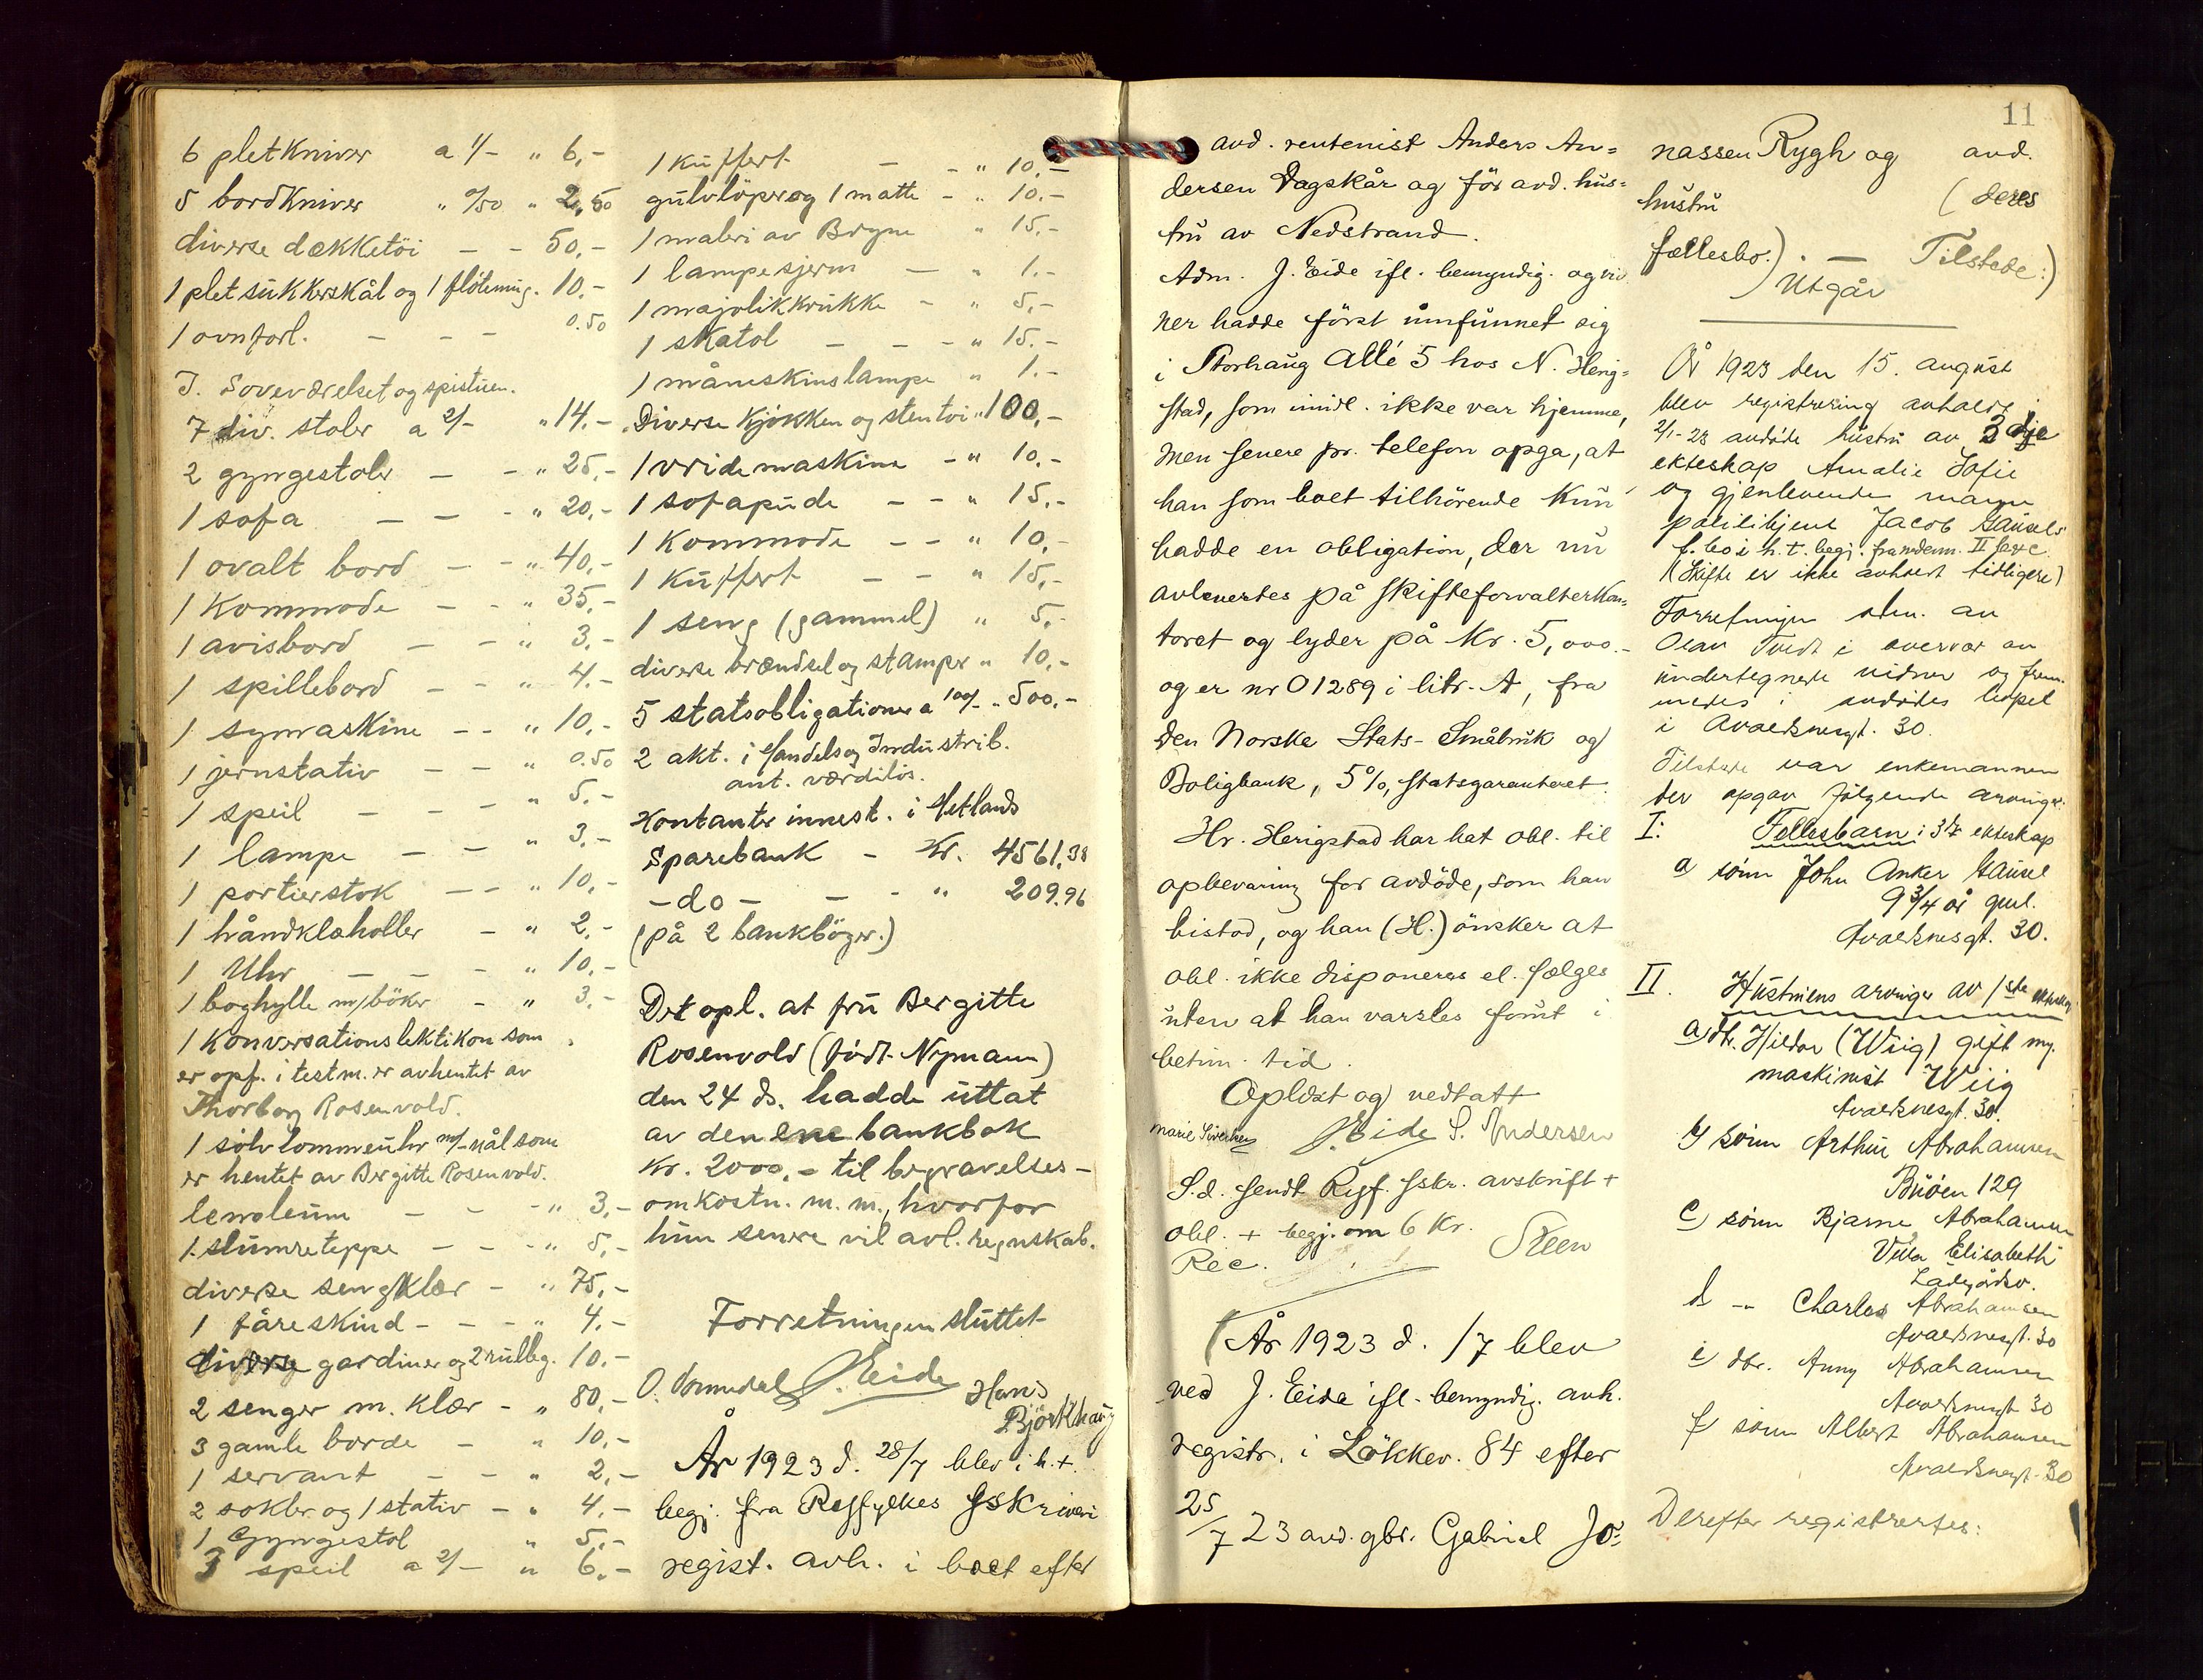 6 pletkniver a 1/- " 6,-
5 bordkniver " 0/50 " 2,50
diverse dækketöi - - 50,-
1 plet sukkerskål og 1 flötemug. 10.-
1 ovnforl. - - - 0.50
I. Soveværelset og spistuen.
7 div. stoler a 2/- " 14.-
2 gyngestoler - - " 25,-
1 sofa - - - " 20,-
1 ovalt bord - - " 40,-
1 Kommode - - " 35,-
1 avisbord - - " 3,-
1 spillebord - - " 4.-
1 symaskine - - " 10,-
1 jernstativ - - " 0.50
1 speil - - - " 5.-
1 lampe - - " 3,-
1 portierstok - - " 10,-
1 håndklæholler - " 2,-
1 Uhr - - - " 10,-
1 boghylle m/böker - " 3,-
1 Konversationslektikon som
er opf. i testm. er avhentet av
Thorborg Rosenvold.
1 sölvlommeuhr m/nål som
er hentet av Bergitte Rosenvold.
lenoleum - - - " 3,-
1 slumreteppe - - - " 5,-
diverse sengklær - " 75,-
1 fåreskind - - - " 4,-
diverse gardiner og 2 rullbg. 10.-
2 senger m. klær - " 80,-
3 gamle borde - " 10,-
1 servant - - " 2,-
2 sokler og 1 stativ - " 4,-
1 Gyngestol " 5,-
3 speil a 2/- " 6,-
1 Kuffert - - " 10,-
gulvlöper og 1 matte - " 10.-
1 maleri av Bryne " 15,-
1 lampesjerm - " 1.-
1 majolikkrukke - " 5,-
1 skatol - - - " 15.-
1 måneskinslampe " 1.-
Diverse Kjökken og stentöi " 100,-
1 vridemaskine - " 10.-
1 sofapude - - " 15,-
1 Kommode - - " 10,-
1 Kuffert - - " 15,-
1 seng (gammel) " 5,-
diverse brændsel og stamper " 10,-
5 statsobligationer a 100/- " 500,-
2 akt. i Handels og Industrib.
ant. værdilös.
Kontanter innest. i Hetlands
Sparebank - Kr. 4561,38
- do - - - " 209.96
(på 2 bankböger.)
Det opl. at fru Bergitte
Rosenvold (födt Nymann)
den 24 ds. hadde uttat
av den ene bankbok
Kr. 2000,- til begravelses-
omkostn. m. m., hvorfor
hun senere vil avl. regnskab.
Forretningen sluttet
J. Eide Hans
Björkhaug
År 1923 d. 28/7 blev i h.t.
begj. fra Ryfylkes sskriveri
regist. avh. i boet efter
11
avd. rentenist Anders An=
dersen Dagskår og för avd. hus=
tru av Nedstrand.
Adm. J. Eide ifl. bemyndig. og vid
ner hadde först innfunnet sig
i Storhaug Allé 5 hos N. Herig=
stad, som imidl. ikke var hjemme,
men senere pr. telefon opga, at
han som boet tilhörende kun
hadde en obligation, der nu
avlevertes på Skifteforvalterkon=
toret og lyder på Kr. 5,000.-
og er nr 01289 i litr. A, fra
Den Norske Stats- Småbruk og
Boligbank, 5%, statsgaranteret.
Hr. Herigstad har hat obl. til
opbevaring for avdöde, som han
bistod, og han (H.) önsker at
obl. ikke disponeres el. sælges
uten at han varsles forut i
betim. tid.
Oplæst og vedtatt
Marie Sivertsen J. Eide S. Andersen
S.d. sendt Ryf. sskr. avskrift +
obl. + begj. om 6 Kr. Steen
Rec.
År 1923 d. /7 blev
ved J. Eide ifl. bemyndig. avh.
registr. i Lökkev. 84 efter
25/7 23 avd. gbr. Gabriel Jo=
nassen Rygh og avd.
hustru (deres
fællesbo.) . - Tilstede:)
Utgår
År 1923 den 15. august
blev registrering avholdt
2/1-23 avdöde hustru av 3dje
ekteskap Amalie Sofie
og gjenlevende mann
politibetjent Jacob Gausels
f. bo i h. t. begj. fra
(Skifte er ikke avholdt tidligere)
Forretningen adm. av
Olav Tvedt i overvær av
undertegnede vidner og frem-
medes i avdödes leopel
i Avaldsnesgt. 30.
Tilstede var enkemannen
der opgav fölgende arvinger:
I. Fellesbarn i 3dje ekteskap
a) sönn John Anker Gausel
9 3/4 år gml.
Avaldsnesgt. 30.
II. Hustruens arvinger av 1ste ekteskap
a) dtr. Hildar (Wiig) gift m.
maskinist Wiig
Avaldsnesgt. 30.
b) sönn Arthur Abrahamsen
Buöen 129
c) sönn Bjarne Abrahamsen
Villa Elisabeth
Ladegårdsv.
d - " - Charles Abrahamsen
Avaldsnesgt. 30
e) dtr. Anny Abrahamsen
Avaldsnesgt 30
f) sönn Albert Abrahamsen
Avaldsnesgt. 30
Derefter registrertes: